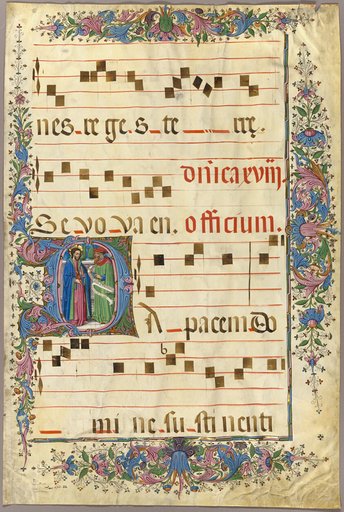 nes_re ge_s_te_ _ _rrę.
dn̄ica xviij.
Se vo_va en. officium.
DA_pacem.Do
_ mi ne_su_sti nenti